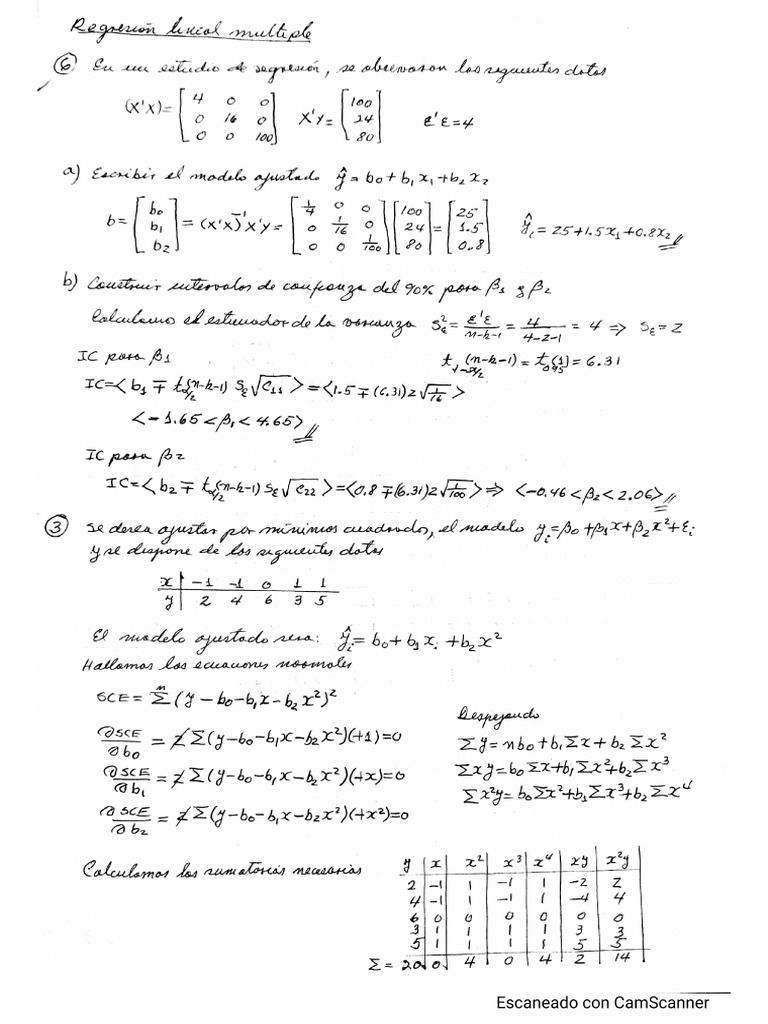 Regresión lineal multiple
⑥ En un estudio de regresión, se observaron los siguientes datos
(X'X)= [4 0 0; 0 16 0; 0 0 100] X'Y= [100; 24; 80] ε'ε=4
a) Escribir el modelo ajustado ŷ= b0+b1x1+b2x2
b= [b0; b1; b2] = (X'X)⁻¹X'Y= [1/4 0 0; 0 1/16 0; 0 0 1/100] [100; 24; 80] = [25; 1.5; 0.8] ŷi = 25+1.5x1+0.8x2
b) Construir intervalos de confianza del 90% para β1 y β2
Calculamos el estimador de la varianza Sε² = ε'ε/(n-k-1) = 4/(4-2-1) = 4 ⇒ Sε=2
IC para β1 t1-α/2 (n-k-1) = t0.95(1) = 6.31
IC=< b1 ∓ tα/2(n-k-1) Sε√C11 > = <1.5 ∓ (6.31)2√1/16 >
<-1.65 < β1 < 4.65>
IC para β2
IC=< b2 ∓ tα/2(n-k-1) Sε√C22 > = <0.8 ∓(6.31)2√1/100 > ⇒ <-0.46 < β2 < 2.06>
③ Se desea ajustar por mínimos cuadrados, el modelo yi=β0+β1x+β2x²+εi
y se dispone de los siguientes datos
x | -1 -1 0 1 1
y | 2 4 6 3 5
El modelo ajustado sera: ŷi= b0+b1xi+b2x²
Hallamos las ecuaciones normales
SCE= Σⁿ (y-b0-b1x-b2x²)²
∂SCE/∂b0 = ≠Σ(y-b0-b1x-b2x²)(+1)=0
∂SCE/∂b1 = ≠Σ(y-b0-b1x-b2x²)(+x)=0
∂SCE/∂b2 = ≠Σ(y-b0-b1x-b2x²)(+x²)=0
Despejando
Σy=nb0+b1Σx+b2Σx²
Σxy=b0Σx+b1Σx²+b2Σx³
Σx²y=b0Σx²+b1Σx³+b2Σx⁴
Calculamos las sumatorias necesarias
y | x | x² | x³ | x⁴ | xy | x²y
2 | -1 | 1 | -1 | 1 | -2 | 2
4 | -1 | 1 | -1 | 1 | -4 | 4
6 | 0 | 0 | 0 | 0 | 0 | 0
3 | 1 | 1 | 1 | 1 | 3 | 3
5 | 1 | 1 | 1 | 1 | 5 | 5
Σ = 20 | 0 | 4 | 0 | 4 | 2 | 14
Escaneado con CamScanner